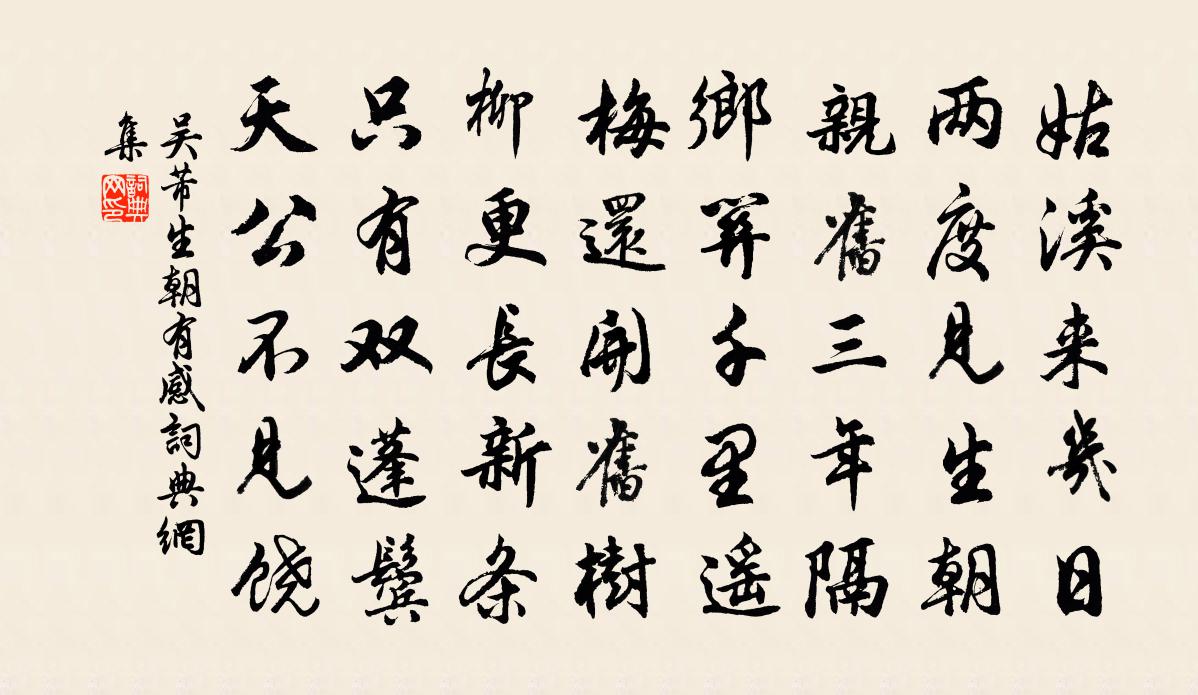 姑溪来幾日
两度見生朝
親舊三年隔
鄉關千里遥
梅還開舊樹
柳更長新条
只有双蓬鬓
天公不見饶
吴芾生朝有感詞典網
集
詞典
网印